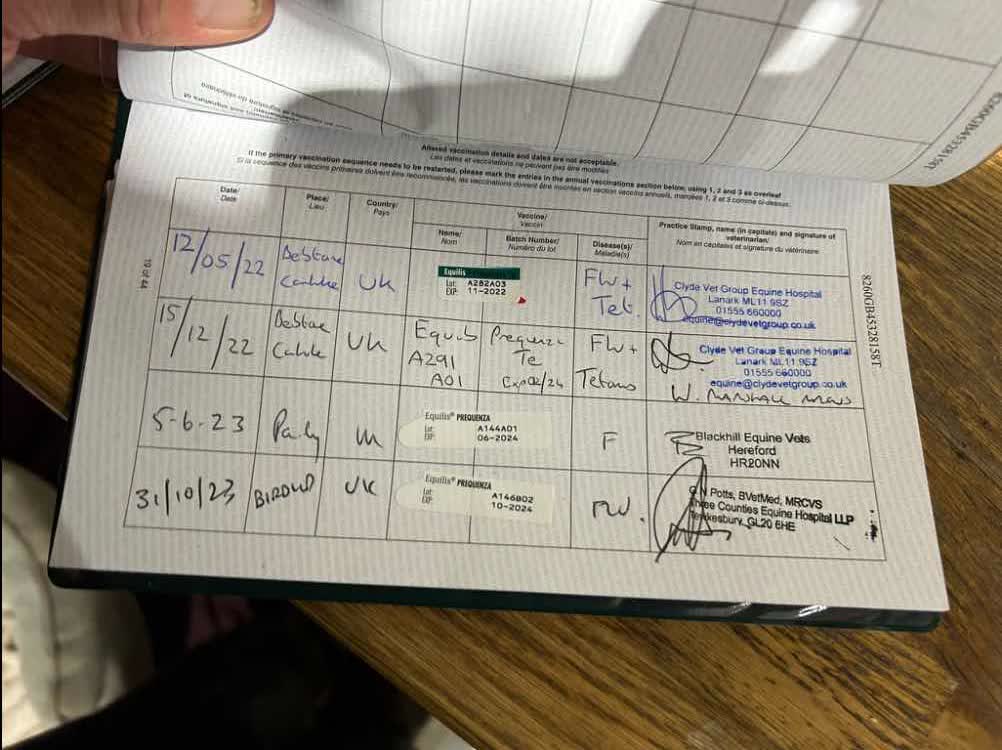 Altered vaccination details and dates are not acceptable.
Les dates et vaccinations ne peuvent pas être modifiés
If the primary vaccination sequence needs to be restarted, please mark the entries in the annual vaccinations section below, using 1, 2 and 3 as overleaf
Date/
Date
Place/
Lieu
Country/
Pays
Vaccine/
Vaccin
Name/
Nom
Batch Number/
Numéro du lot
Disease(s)/
Maladie(s)
Practice Stamp, name (in capitals) and signature of
veterinarian/
Nom en capitales et signature du vétérinaire
12/05/22
UK
Equilis
Lot: A282A03
EXP: 11-2022
Flu +
Tet.
Clyde Vet Group Equine Hospital
Lanark ML11 9SZ
01555 660000
equine@clydevetgroup.co.uk
15/12/22
UK
Equilis
A291
A01
Prequenza
Te
Exp 02/24
Flu +
Tetanus
Clyde Vet Group Equine Hospital
Lanark ML11 9SZ
01555 660000
equine@clydevetgroup.co.uk
W. MARSHALL MRCVS
5-6-23
Equilis® PREQUENZA
Lot: A144A01
EXP: 06-2024
F
Blackhill Equine Vets
Hereford
HR20NN
31/10/23
UK
Equilis® PREQUENZA
Lot: A146B02
EXP: 10-2024
FLU.
Potts, BVetMed, MRCVS
Three Counties Equine Hospital LLP
Tewkesbury, GL20 6HE
19 of 44
8260GB45328158T
8260GB45328158T